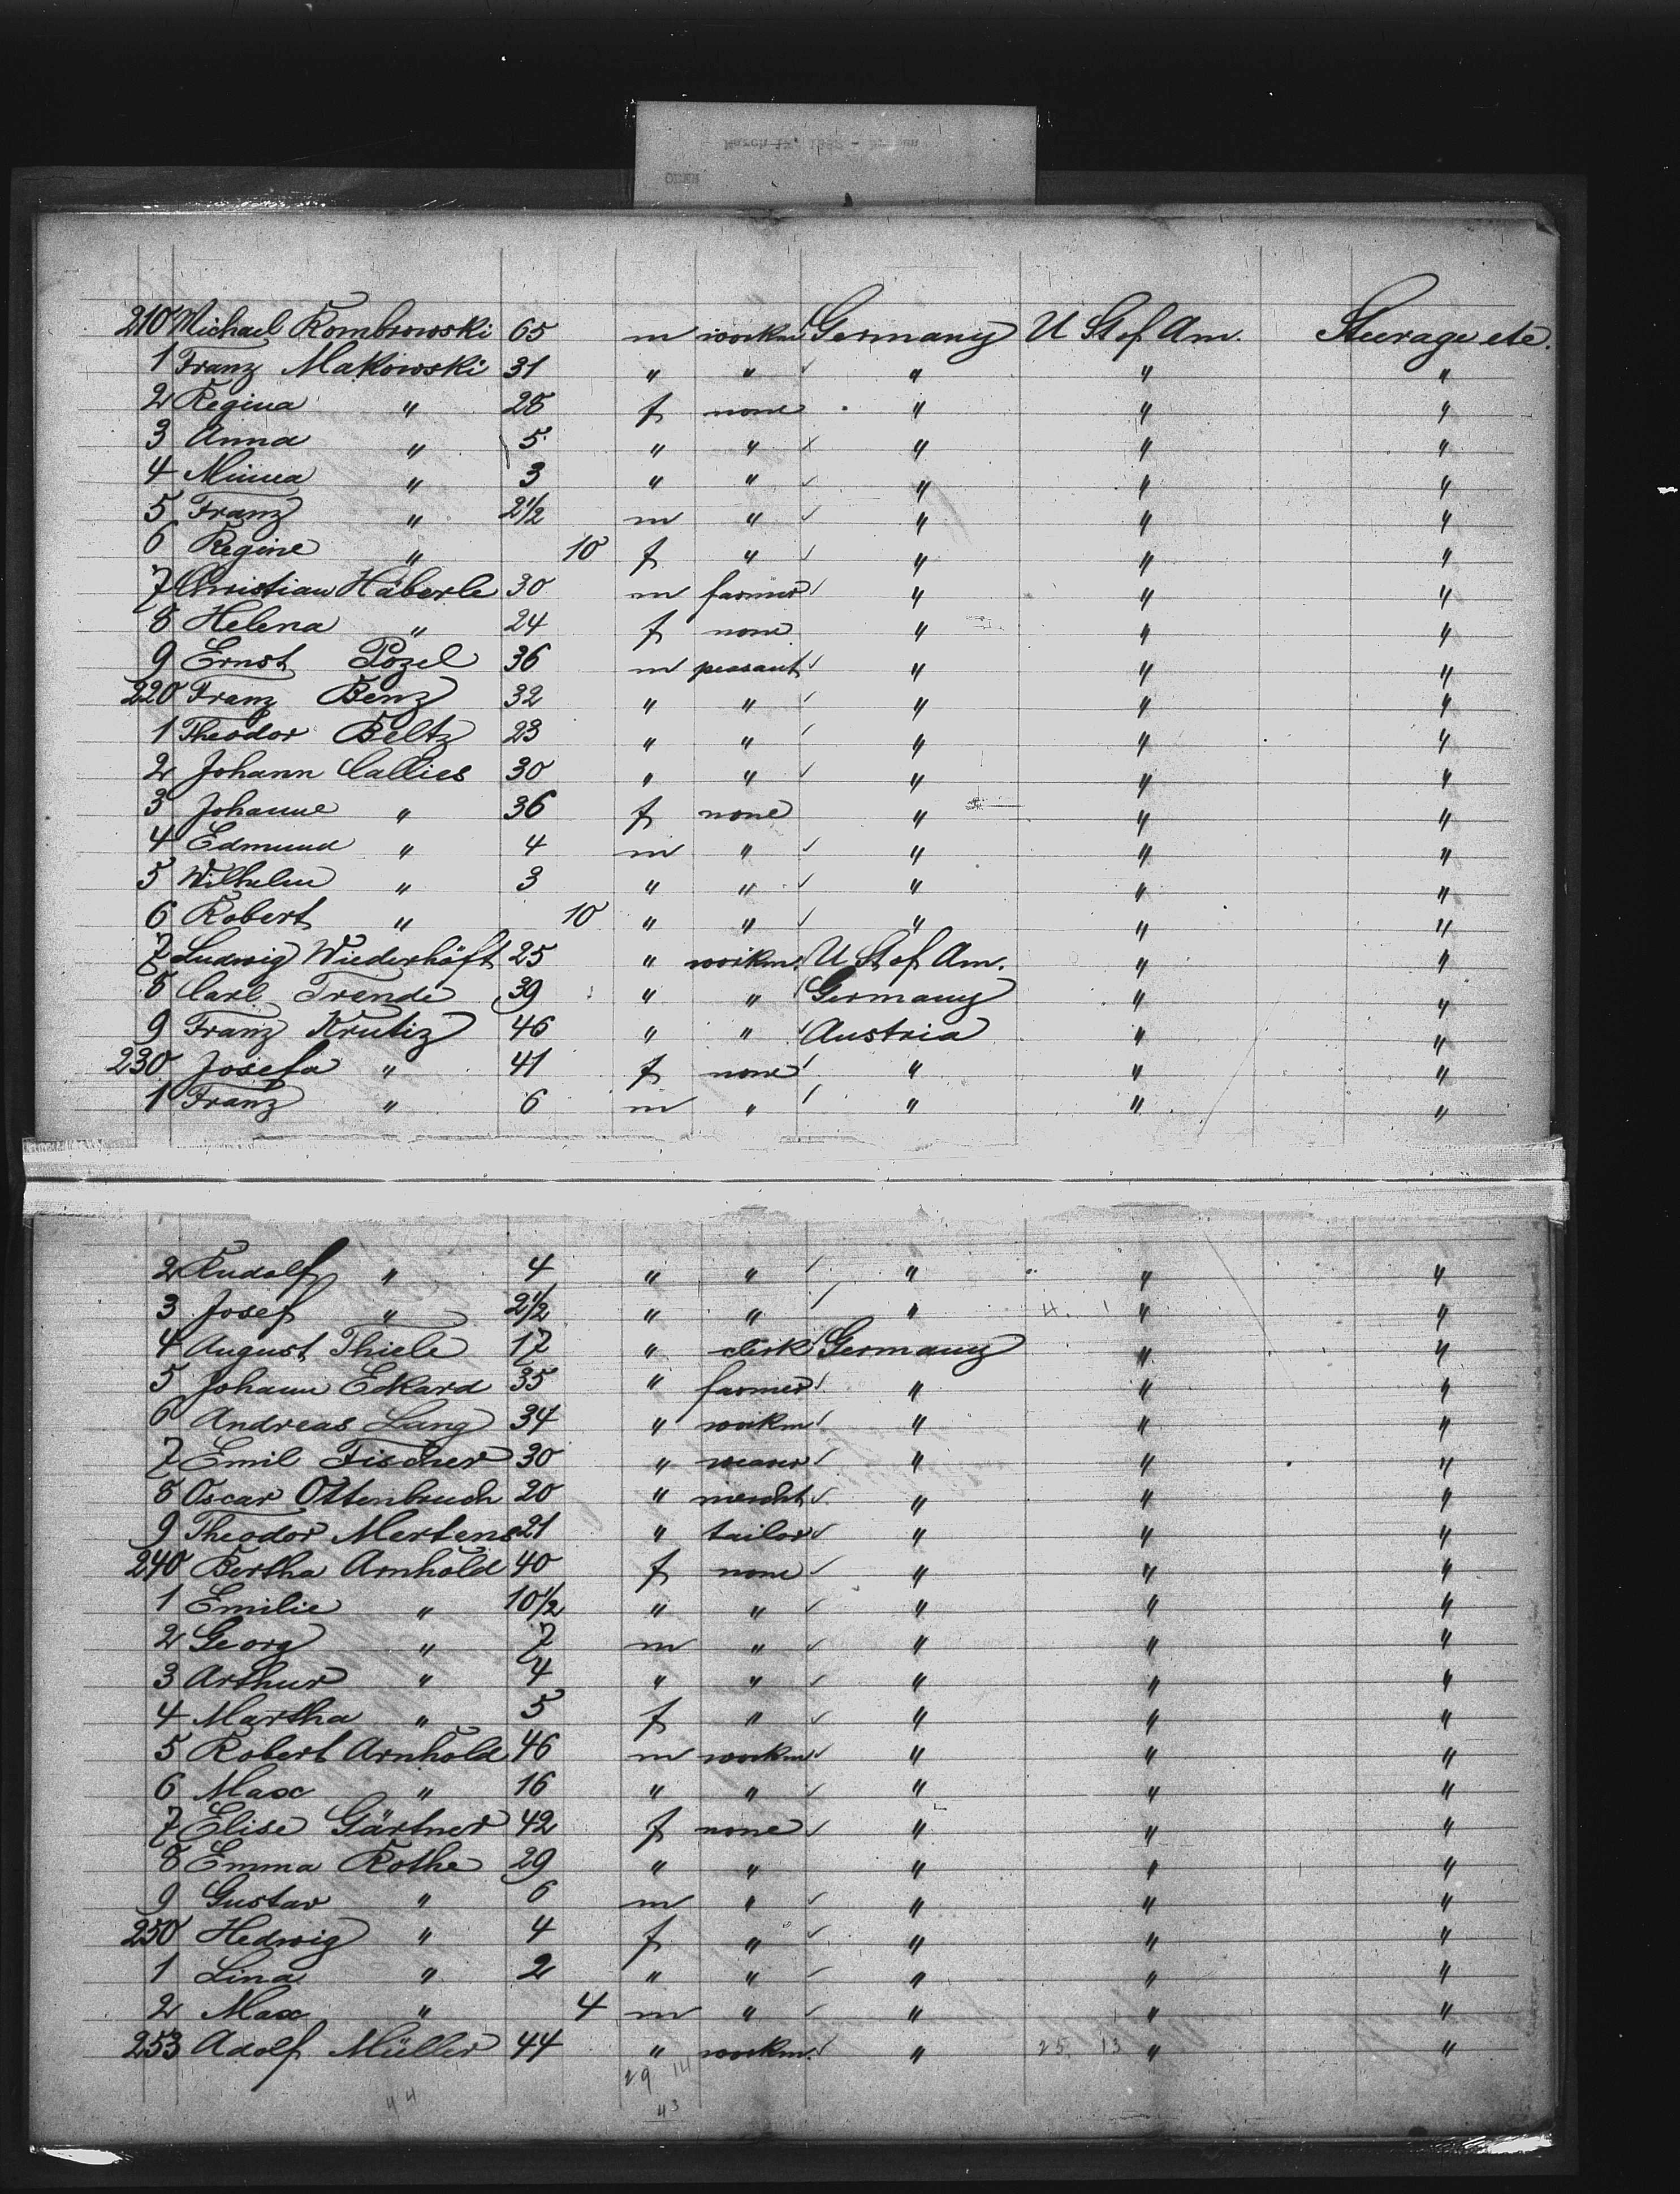 210 Michael Rombrowski 65 m workm Germany U St of Am. Steerage etc.
1 Franz Makowski 31 " " " " "
2 Regina " 28 f none " " "
3 Anna " 5 " " " " "
4 Minna " 3 " " " " "
5 Franz " 2 1/2 m " " " "
6 Regine " 10 f " " " "
7 Christian Häberle 30 m farmer " " "
8 Helena " 24 f none " " "
9 Ernst Pozel 36 m peasant " " "
220 Franz Benz 32 " " " " "
1 Theodor Beltz 23 " " " " "
2 Johann Callies 30 " " " " "
3 Johanne " 36 f none " " "
4 Edmund " 4 m " " " "
5 Wilhelm " 3 " " " " "
6 Robert " 10 " " " " "
7 Ludwig Wiederhöft 25 " workm. U St of Am. " "
8 Carl Trende 39 " " Germany " "
9 Franz Krutiz 46 " " Austria " "
230 Josefa " 41 f none " " "
1 Franz " 6 m " " " "
2 Rudolf " 4 " " " " "
3 Josef " 2 1/2 " " " " "
4 August Thiele 17 " clerk Germany " "
5 Johann Eckard 35 " farmer " " "
6 Andreas Lang 34 " workm " " "
7 Emil Fischer 30 " weaver " " "
8 Oscar Ottenbruch 20 " mercht " " "
9 Theodor Mertens 21 " tailor " " "
240 Bertha Arnhold 40 f none " " "
1 Emilie " 10 1/2 " " " " "
2 Georg " 7 m " " " "
3 Arthur " 4 " " " " "
4 Martha " 5 f " " " "
5 Robert Arnhold 46 m workm " " "
6 Max " 16 " " " " "
7 Elise Gärtner 42 f none " " "
8 Emma Rothe 29 " " " " "
9 Gustav " 6 m " " " "
250 Hedwig " 4 f " " " "
1 Lina " 2 " " " " "
2 Max " 4 m " " " "
253 Adolf Müller 44 " workm. " 25 13 " "
29 14
44
43